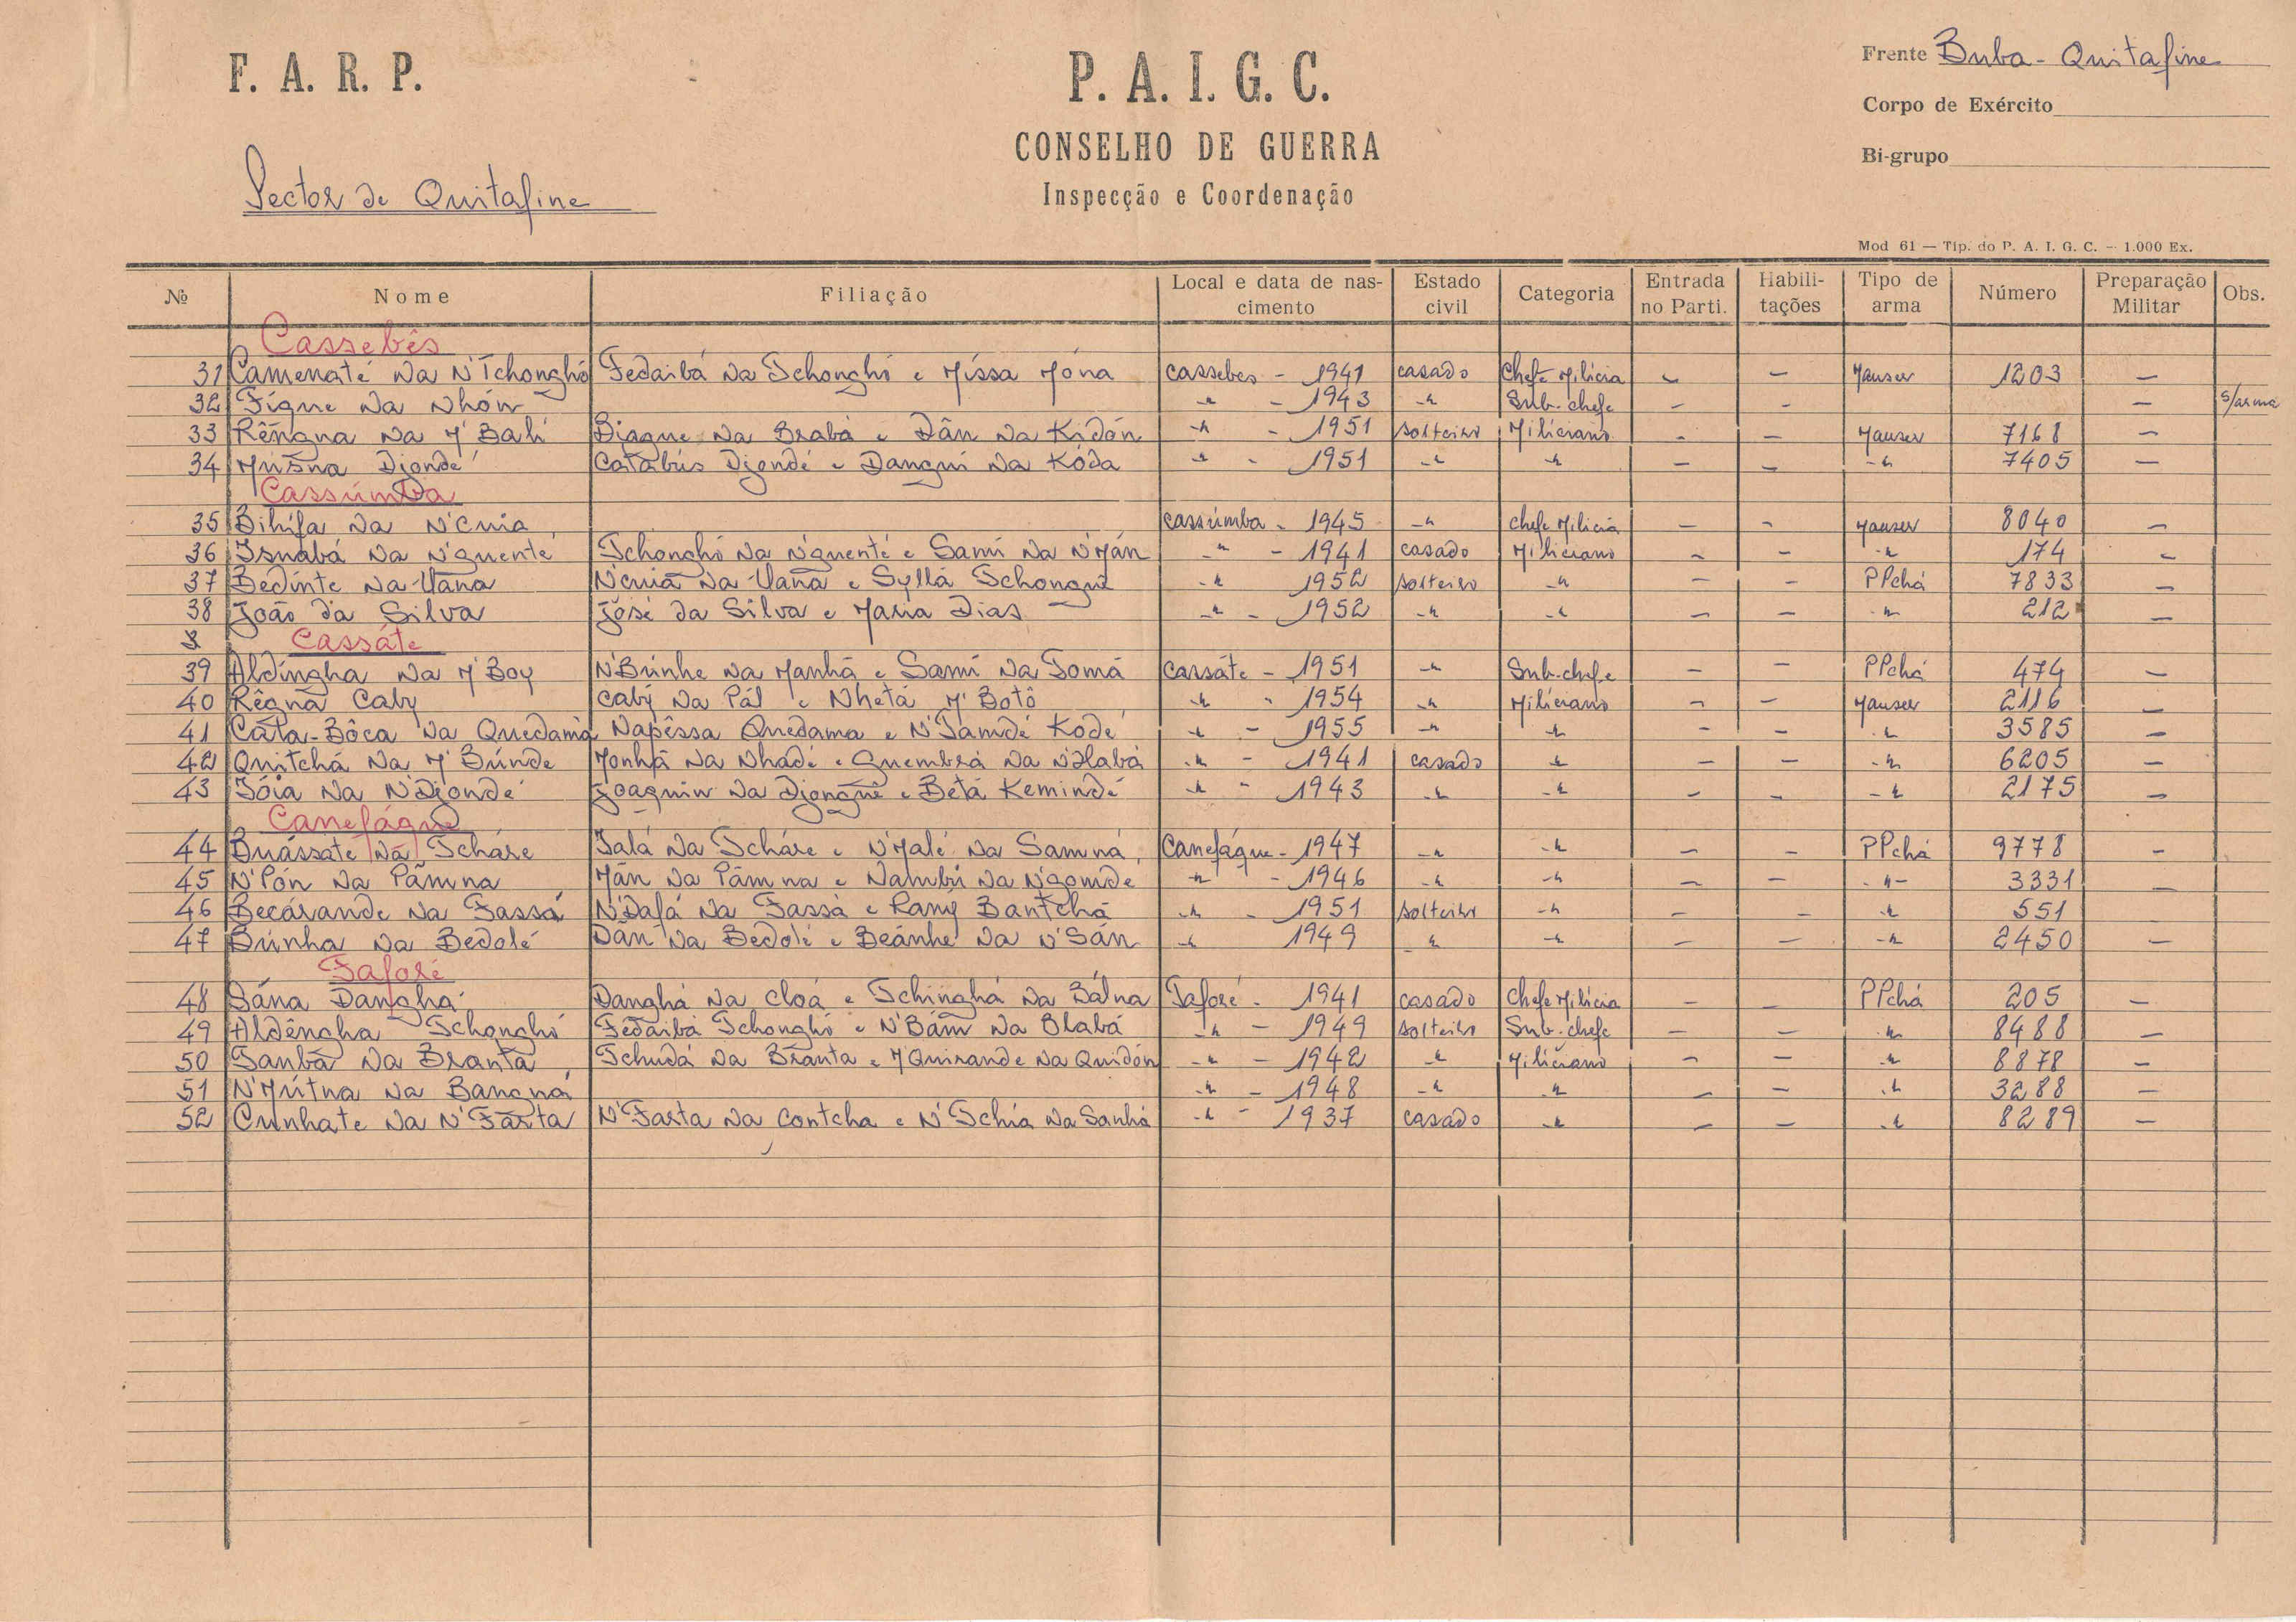 F. A. R. P.
P. A. I. G. C.
CONSELHO DE GUERRA
Inspecção e Coordenação
Frente Buba - Quitafine
Corpo de Exército
Bi-grupo
Sector de Quitafine
Mod 61 — Tip. do P. A. I. G. C. — 1.000 Ex.
№ Nome Filiação Local e data de nascimento Estado civil Categoria Entrada no Parti. Habilitações Tipo de arma Número Preparação Militar Obs.
Cassebês
31 Camenaté Na N'Tchonghó Fedaibá Na Tchonghó e Míssa Móna Cassebes - 1941 casado Chefe Milícia - - Mauser 1203 -
32 Fígne Na Nhón " - 1943 " Sub-chefe - - - s/arma
33 Rêngna Na M'Bali Diagne Na Brabá e Dân Na Kidón " - 1951 solteiro Miliciano - - Mauser 7168 -
34 Musna Djondé Catabús Djondé e Dangui Na Kóda " - 1951 " " - - " 7405 -
Cassúmba
35 Bihifa Na N'Cuia Cassúmba - 1945 " Chefe Milícia - - Mauser 8040 -
36 Isnabá Na N'guenté Tchonghó Na N'guenté e Samí Na N'Mán " - 1941 casado Miliciano - - " 174 -
37 Bedinte Na Uana N'cuia Na Uana e Syllá Tchongui " 1952 solteiro " - - PPchá 7833 -
38 João da Silva José da Silva e Maria Dias " - 1952 " " - - " 212 -
Cassáte
39 Aldíngha Na M'Boy N'Búnhe Na Manhã e Samí Na Tomá Cassáte - 1951 " Sub-chefe - - PPchá 474 -
40 Rêgna Caby Caby Na Pál e Nhetá M'Botô " - 1954 " Miliciano - - Mauser 2116 -
41 Cáta-Bôca Na Quedamá Napêssa Quedama e N'Tamdé Kodé " - 1955 " " - - " 3585 -
42 Quitchá Na M'Búnde Monhá Na Nhadé e Guembrá Na N'Habá " - 1941 casado " - - " 6205 -
43 Tóia Na N'Djondé Joaquin Na Djongue e Betá Kemindé " - 1943 " " - - " 2175 -
Canefáque
44 Buássate Na Tcháre Talá Na Tcháre e N'Malé Na Samná Canefáque - 1947 " " - - PPchá 9778 -
45 N'Pón Na Pâmna Mán Na Pâmna e Nambú Na N'gomde " - 1946 " " - - " 3331 -
46 Becárande Na Fassá N'Dafá Na Fassá e Rany Bantchã " - 1951 solteiro " - - " 551 -
47 Búnha Na Bedolé Dan Na Bedolé e Beánhe Na N'Sán " 1949 " " - - " 2450 -
Taforé
48 Sána Danghá Danghá Na Cloá e Tchinghá Na Bálna Taforé - 1941 casado Chefe Milícia - - PPchá 205 -
49 Aldêngha Tchonghó Fedaibá Tchonghó e N'Bám Na Blabá " - 1949 solteiro Sub-chefe - - " 8488 -
50 Tanbã Na Branta Tchudá Na Branta e M'Quirande Na Quidón " - 1942 " Miliciano - - " 8878 -
51 N'Mútna Na Bangná " - 1948 " " - - " 3288 -
52 Cunhate Na N'Farta N'Farta Na Contcha e N'Tchia Na Sanhá " - 1937 casado " - - " 8289 -